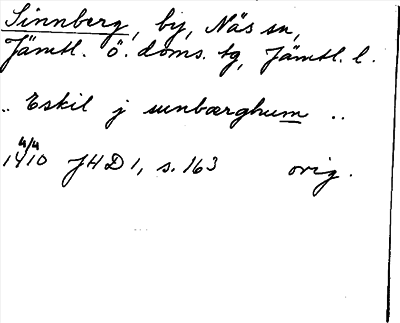 Sinnberg, by, Näs sn,
Jämtl. ö. doms. tg, Jämtl. l.
.. Eskil j sunbærghum ..
4/4
1410 JHD 1, s. 163 orig.